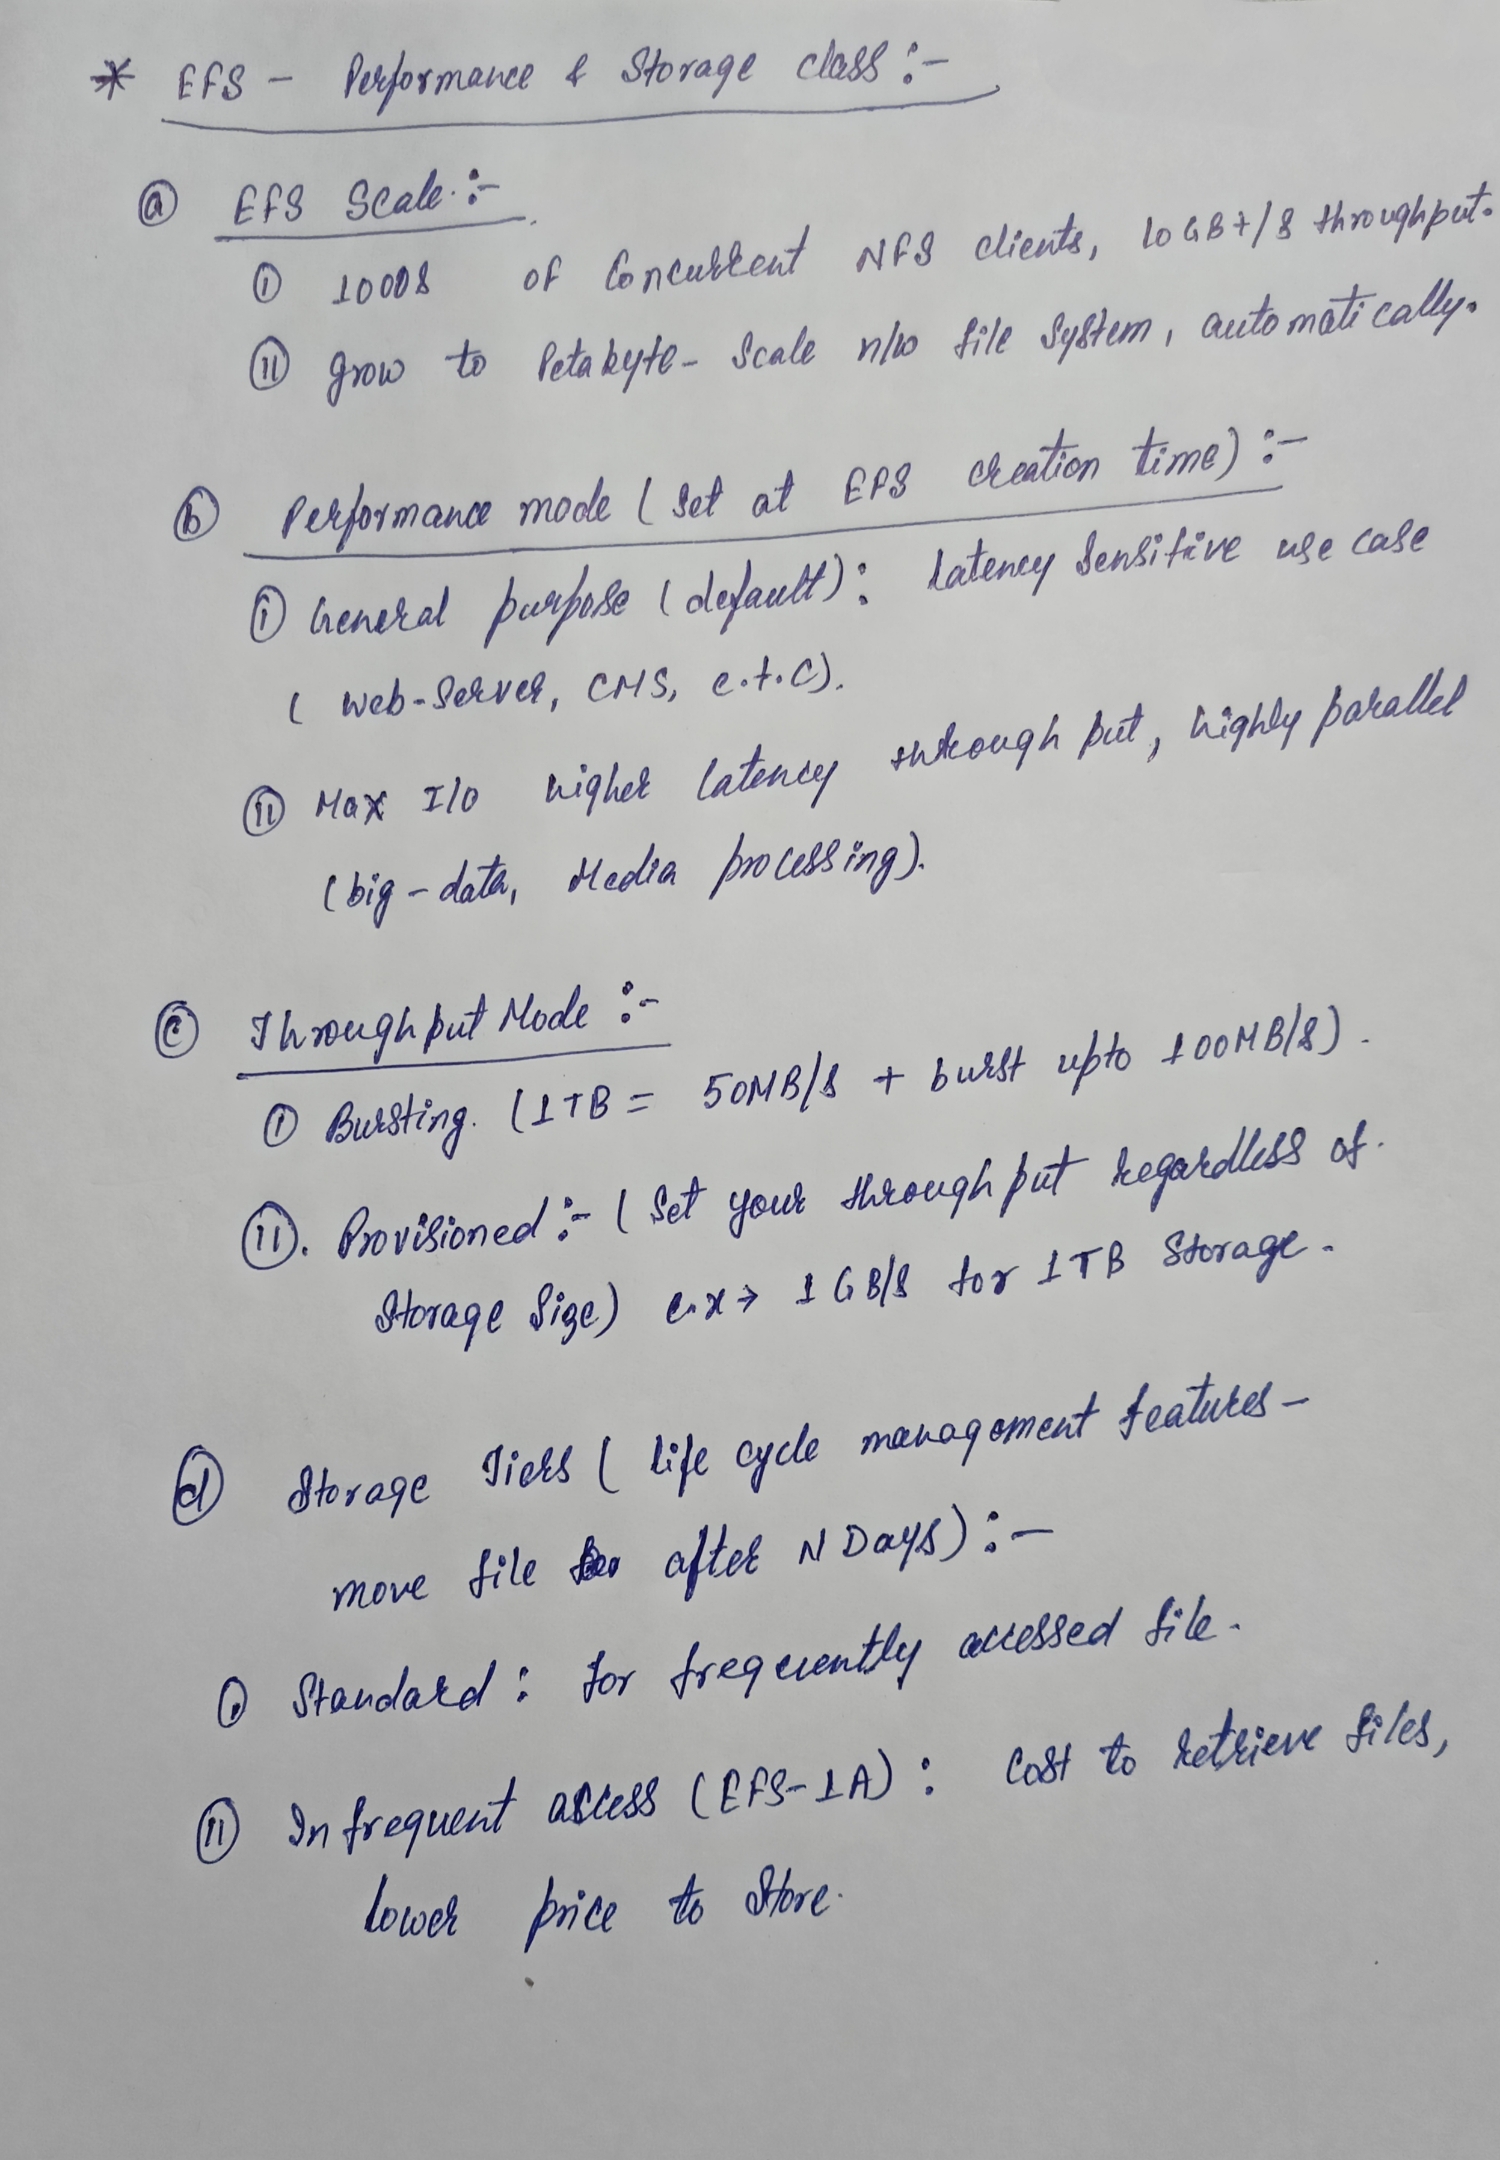 * EFS - Performance & Storage class :-
(a) EFS Scale :-
(i) 1000s of Concurrent NFS clients, 10GB+/s throughput.
(ii) grow to Petabyte-Scale n/w file System, automatically.
(b) Performance mode (Set at EFS creation time) :-
(i) General purpose (default): latency Sensitive use case
(web-Server, CMS, e.t.c).
(ii) Max I/O higher latency through put, highly parallel
(big-data, Media processing).
(c) Throughput Mode :-
(i) Bursting. (1TB = 50MB/s + burst upto 100MB/s).
(ii). Provisioned :- (Set your through put regardless of.
Storage Size) e.x → 1GB/s for 1TB Storage.
(d) Storage Tiers (life cycle management features -
move file after N Days) :-
(i) Standard: for frequently accessed file.
(ii) Infrequent access (EFS-IA): Cost to retrieve files,
lower price to Store.